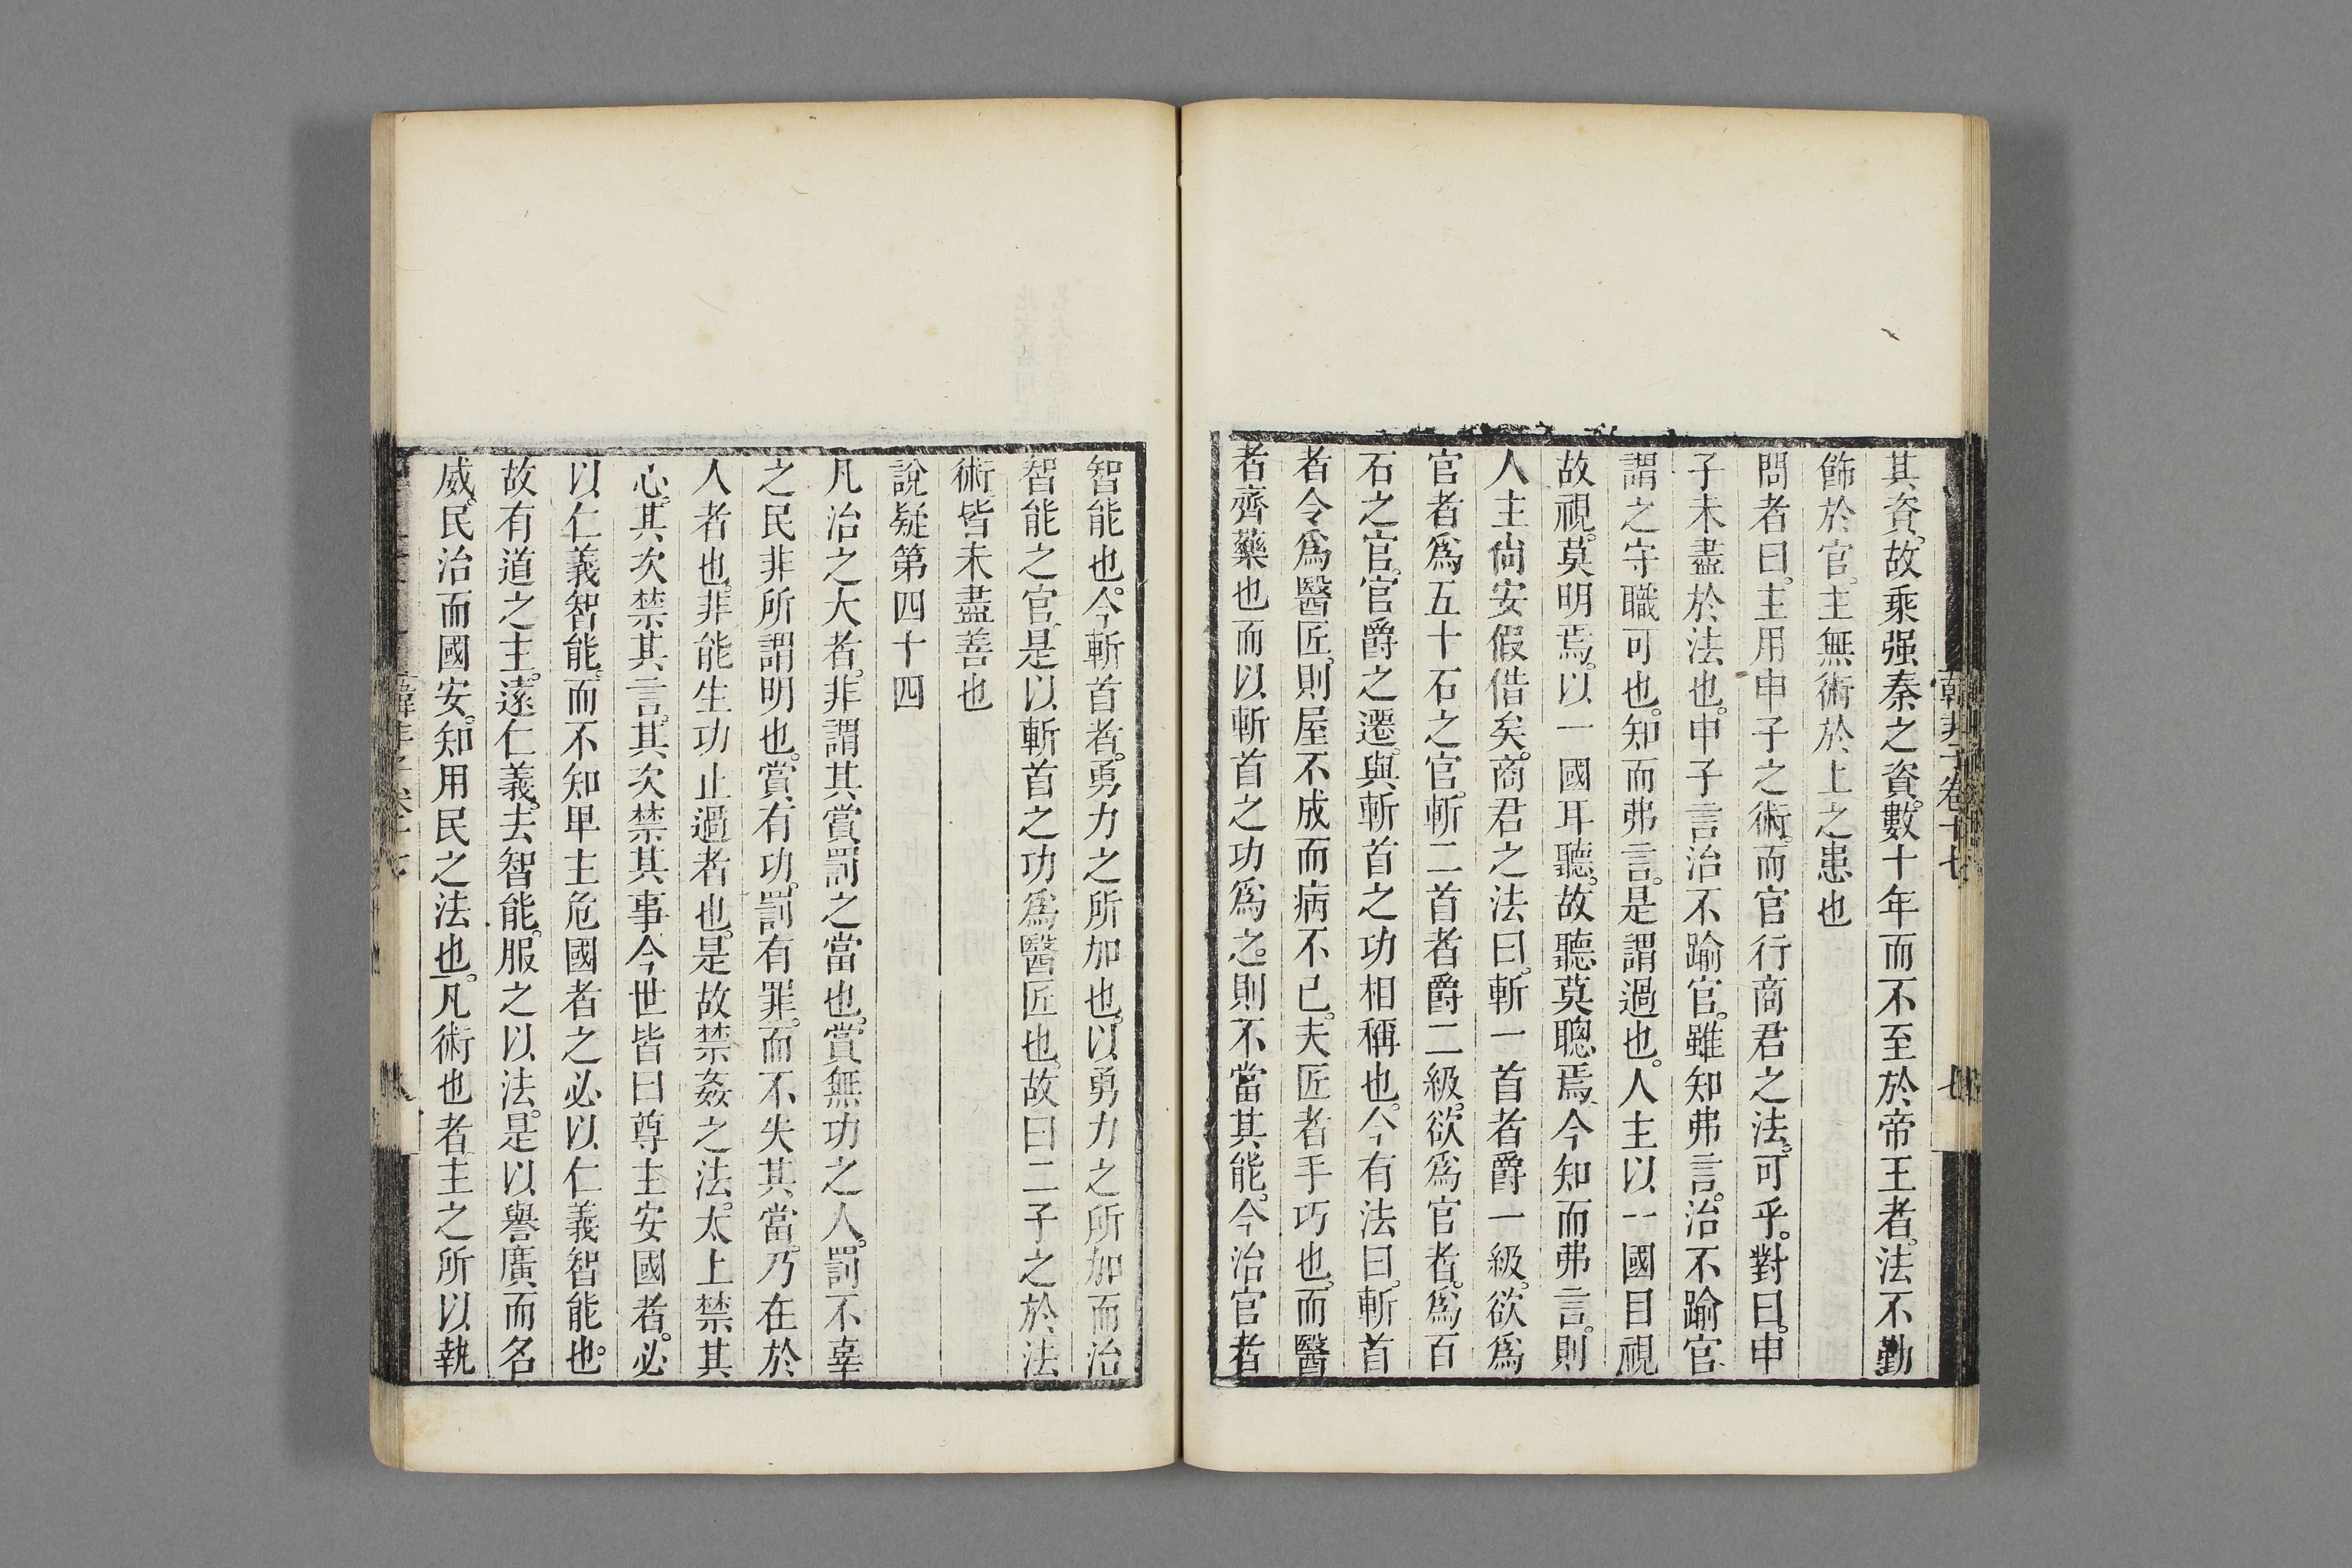 韓非子卷十七
七
其資。故乘强秦之資。數十年而不至於帝王者。法不勤
飾於官。主無術於上之患也
問者曰。主用申子之術。而官行商君之法。可乎。對曰。申
子未盡於法也。申子言治不踰官。雖知弗言。治不踰官
謂之守職可也。知而弗言。是謂過也。人主以一國目視
故視。莫明焉。以一國耳聽。故聽莫聰焉。今知而弗言。則
人主尙安假借矣。商君之法曰。斬一首者爵一級。欲爲
官者爲五十石之官。斬二首者爵二級。欲爲官者。爲百
石之官。官爵之遷。與斬首之功相稱也。今有法曰。斬首
者令爲醫匠。則屋不成而病不已。夫匠者手巧也。而醫
者齊藥也而以斬首之功爲之。則不當其能。今治官者
智能也。今斬首者。勇力之所加也。以勇力之所加而治
智能之官。是以斬首之功爲醫匠也。故曰二子之於法
術皆未盡善也
說疑第四十四
凡治之大者。非謂其賞罰之當也。賞無功之人。罰不辜
之民非所謂明也。賞有功。罰有罪。而不失其當。乃在於
人者也。非能生功止過者也。是故禁姦之法。太上禁其
心。其次禁其言。其次禁其事。今世皆曰尊主安國者。必
以仁義智能。而不知卑主危國者之必以仁義智能也。
故有道之主。遠仁義。去智能。服之以法。是以譽廣而名
威。民治而國安。知用民之法也。凡術也者主之所以執